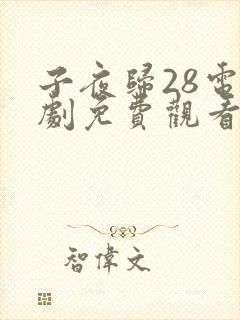 子夜歸28電
劇免費觀看
智偉文